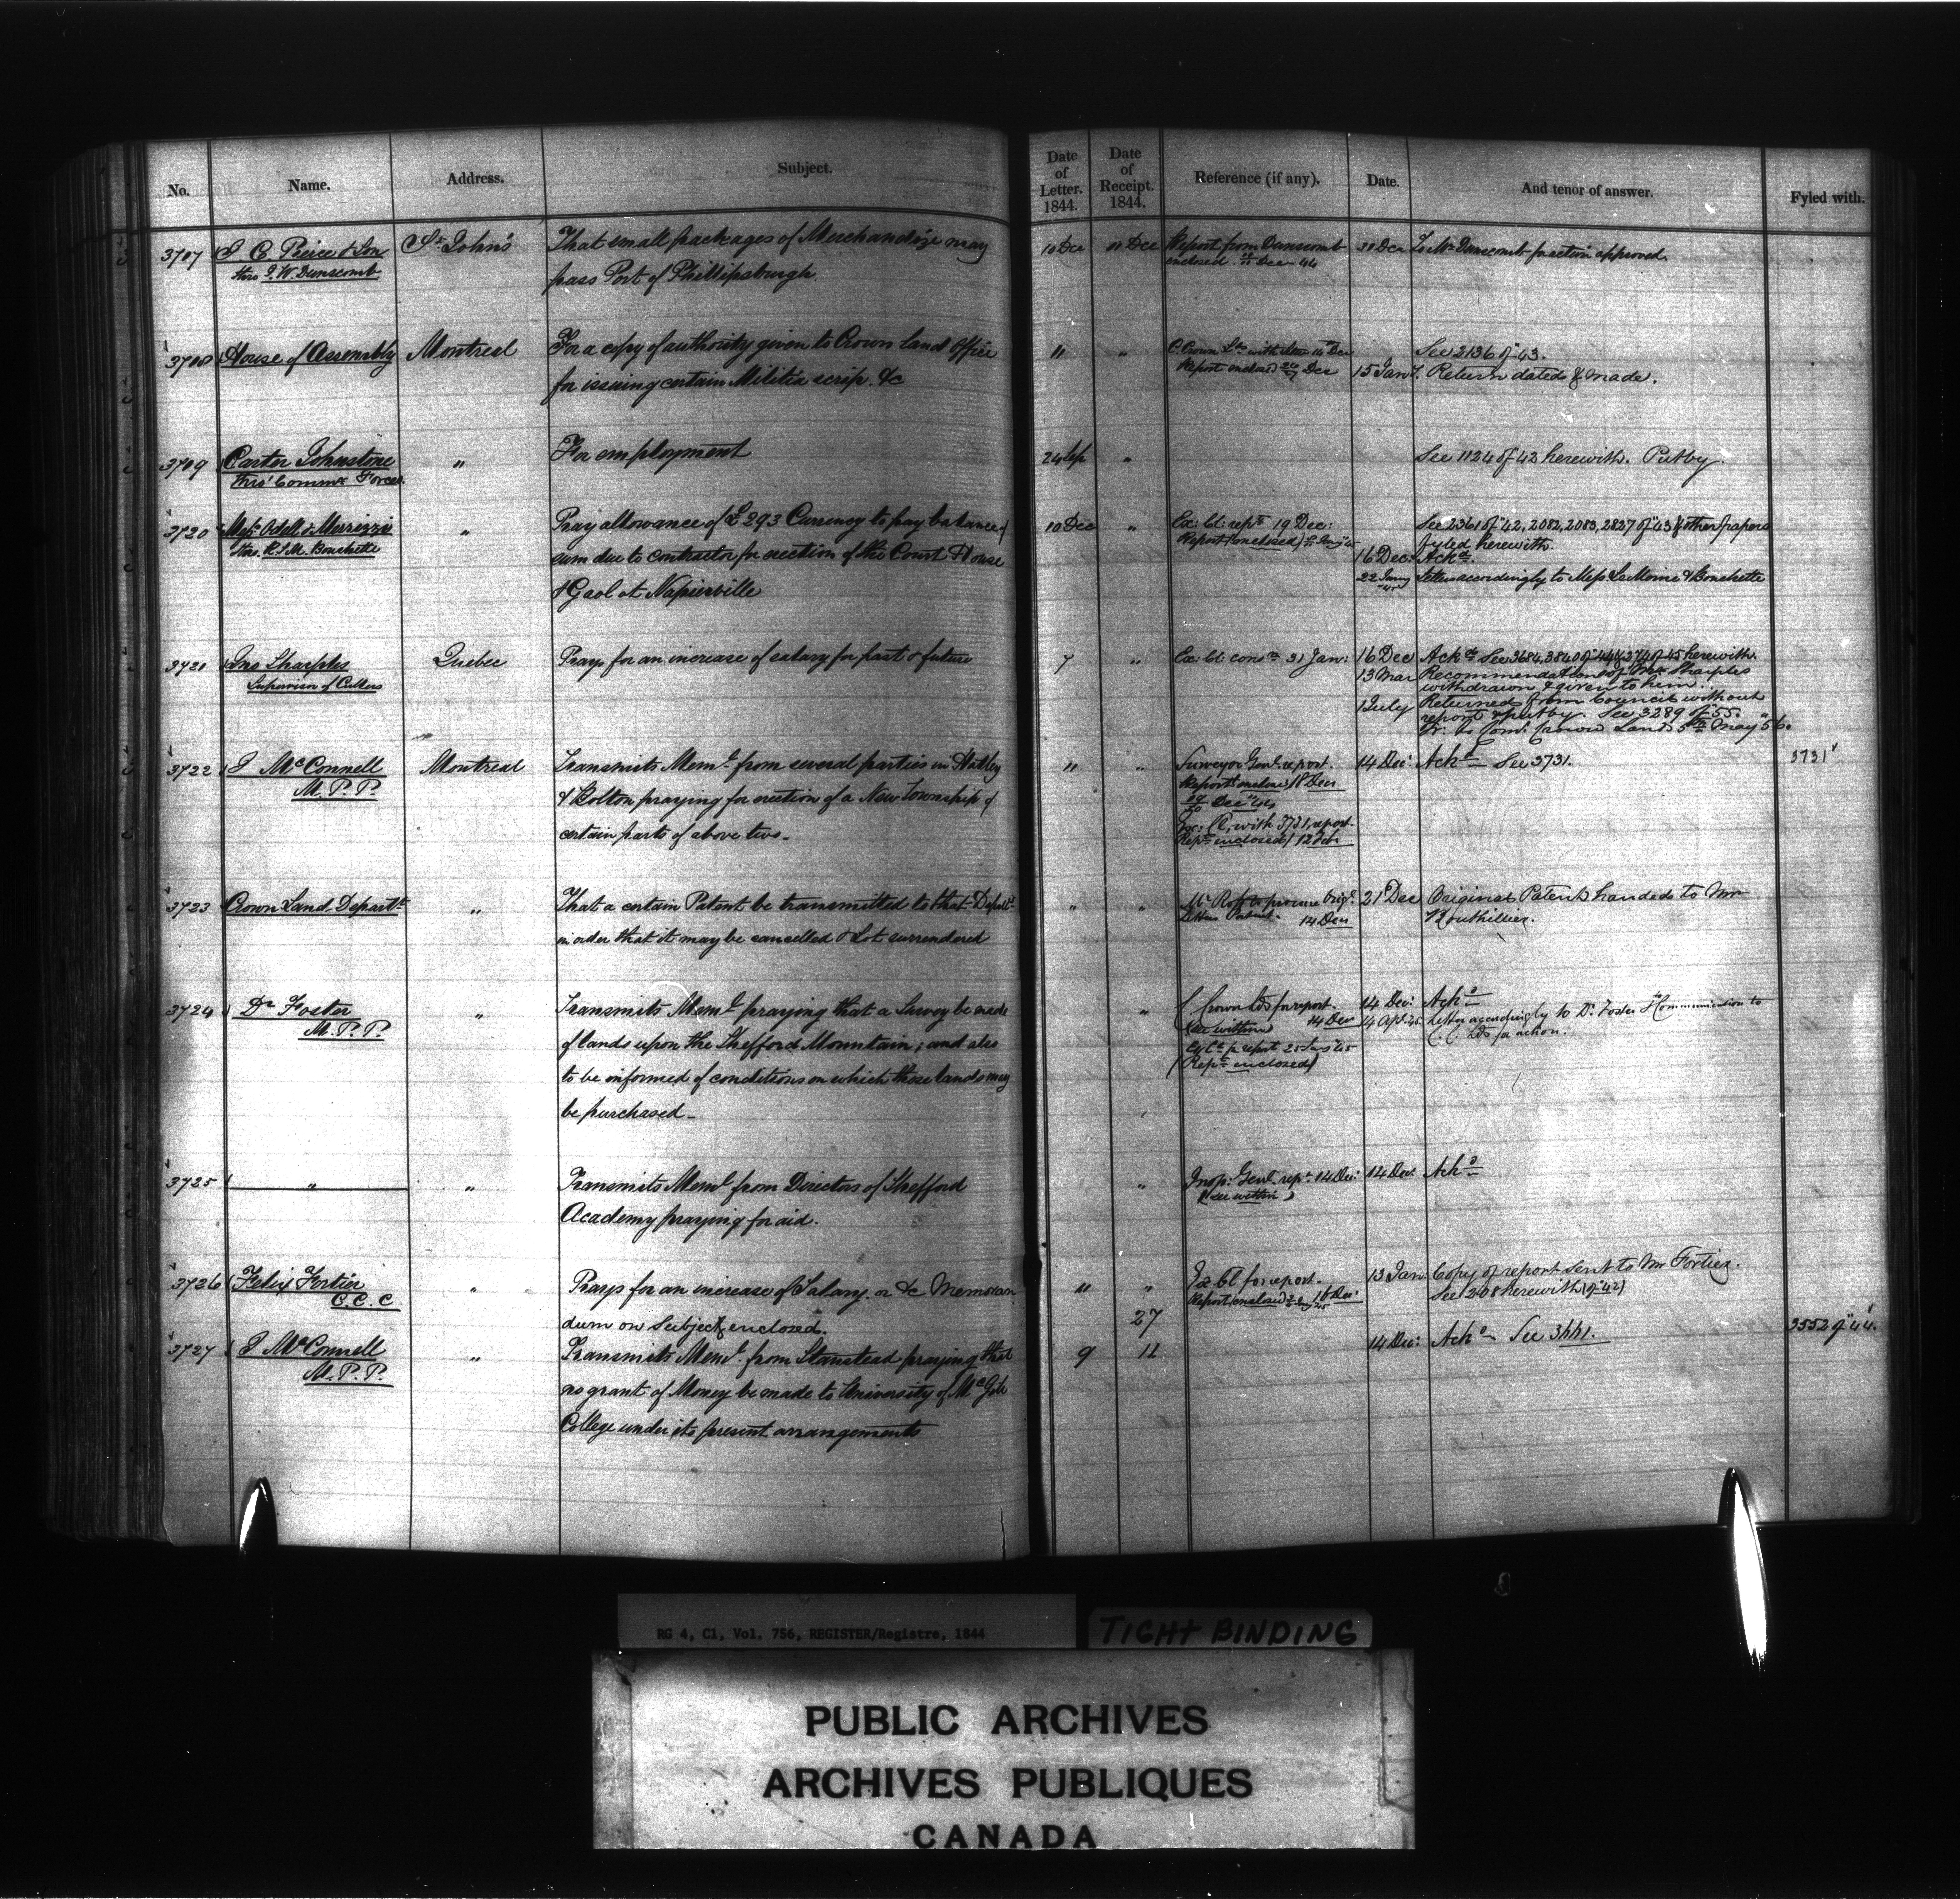 No. Name. Address. Subject. Date of Letter. 1844. Date of Receipt. 1844. Reference (if any). Date. And tenor of answer. Fyled with.
3707 S. C. Peirce & Son St Johns That small packages of Merchandize may 10 Dec 11 Dec Report from Dunscomb 30 Dec To Mr Dunscomb for action approved.
thro J. W. Dunscomb pass Port of Phillipsburgh. enclosed Dec 44
3708 House of Assembly Montreal For a copy of authority given to Crown Land Office 11 " C. Crown Lds with 14 Dec See 2136 of 43.
for issuing certain Militia scrip. &c Report enclosed Dec 15 Jany. Return dated & made.
3709 Carter Johnstone " For employment 24 Sep " See 1124 of 42 herewith. Put by.
thro' Commr Forces
3720 Messrs Odell & Merrizzi " Pray allowance of £293 Currency to pay balance of 10 Dec " Ex: Cl: rept 19 Dec: See 2361 of "42, 2082, 2083, 2827 of "43 & other papers
thro. R. S. M. Bouchette sum due to contractor for erection of the Court House Report (enclosed) fyled herewith.
& Gaol at Napierville 16 Dec: Ackd.
22 Jany 45 Letters accordingly to Mess LeMoine & Bouchette
3721 Jno Sharples Quebec Prays for an increase of salary for past & future 7 " Ex: Cl: 31 Jan: 16 Dec Ackd See 3684, 3840 of 44 & 374 of 45 herewith.
Supervisor of Cullers 13 Mar Recommendations of Mr Sharples
withdrawn & given to him.
1 July Returned from Council without
report & put by. See 3289 of "55.
Tr: to Com: Crown Lands 5th May "56.
3722 J McConnell Montreal Transmits Meml. from several parties in Hatley " " Surveyor Genl. report. 14 Dec Ackd See 3731. 3731
M. P. P. & Bolton praying for erection of a New Township of Report enclosed 18 Dec
certain parts of above two. Dec "44
with 3731, report.
Rept enclosed) 12 Feb.
3723 Crown Land Departt " That a certain Patent be transmitted to that Departt " " Mr Ross to procure Origl 21 Dec Original Patent handed to Mr
in order that it may be cancelled & Lot surrendered Letters Patent. 14 Dec Bouthillier.
3724 Dr Foster " Transmits Meml praying that a Survey be made " C Crown Lds for report. 14 Dec: Ackd
M. P. P. of lands upon the Shefford Mountain; and also (see within) 14 Dec 4 Apl 45 Letter accordingly to Dr. Foster & Communication to
to be informed of conditions on which those lands may Ex Cl for report 25 Jany 45 C. C. Lds for action.
be purchased. (Rept enclosed)
3725 " " Transmits Meml from Directors of Shefford " Insp: Genl. rept. 14 Dec: 14 Dec: Ackd
Academy praying for aid. (see within)
3726 Felix Fortier " Prays for an increase of Salary. or &c Memoran " " Ex Cl for report. 13 Jan: Copy of report sent to Mr Fortier.
C. C. C. dum on Subject enclosed. 27 Report enclosed 16 Dec: See 208 herewith (of 42)
3727 J McConnell " Transmits Meml. from Stanstead praying that 9 11 14 Dec: Ackd See 3441. 3552 of "44.
M. P. P. no grant of Money be made to University of McGill
College under its present arrangements
RG 4, C1, Vol. 756, REGISTER/Registre, 1844
TIGHT BINDING
PUBLIC ARCHIVES
ARCHIVES PUBLIQUES
CANADA